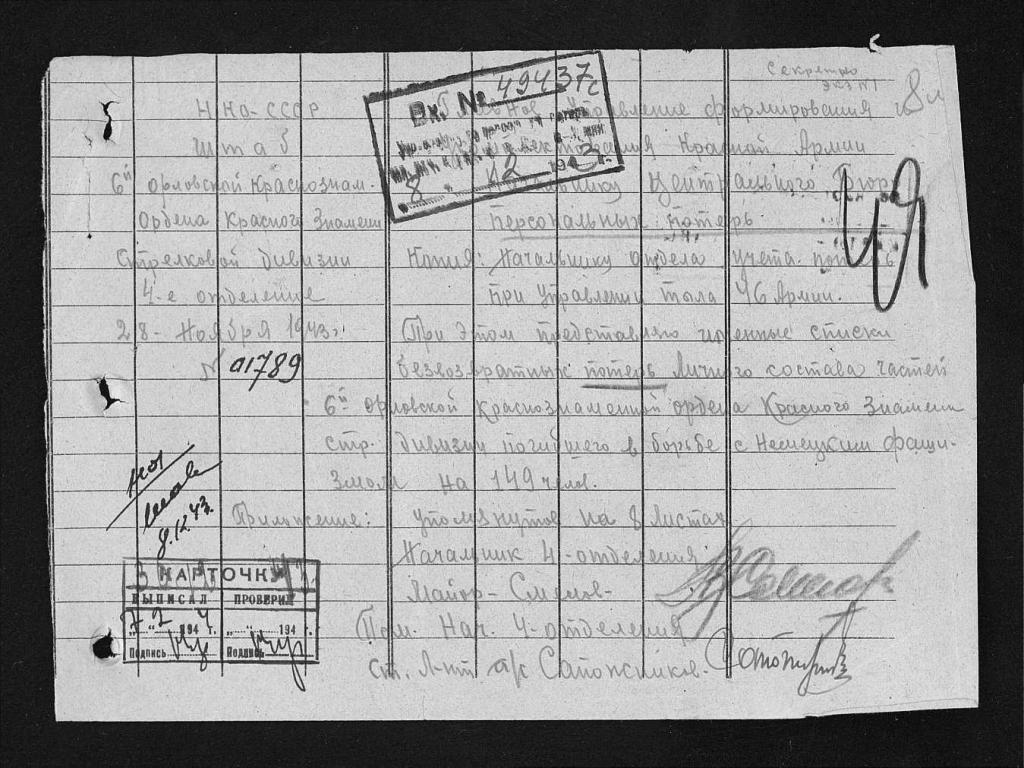 Секретно
экз №1
8л
НКО-СССР
Штаб
6й орловской Краснознам.
Ордена Красного Знамени
Стрелковой дивизии
4-е отделение
28 - Ноября 1943г.
№ 01789
Вх. № 49437с
8 " 12 1943г.
Управление формирования и
Красной Армии
Начальнику Центрального Бюро
персональных потерь
Копия: Начальнику отдела учета потерь
при управлении тыла 46 Армии.
При этом представляю именные списки
безвозвратных потерь личного состава частей
6й орловской Краснознаменной ордена Красного Знамени
стр. дивизии погибшего в борьбе с Немецким фаши-
змом на 149 челов.
Приложение: упомянутое на 8 листах
Начальник 4-отделения
Майор -
Пом. Нач. 4-отделения
ст. Л-нт а/с Сапожников.
8.12.43.
КАРТОЧКУ
ВЫПИСАЛ ПРОВЕРИЛ
194 г. „ " 194 г.
Подпись Подпись